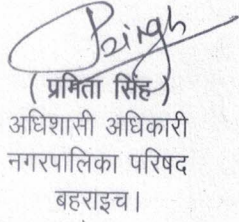 PSingh
( प्रमिता सिंह )
अधिशासी अधिकारी
नगरपालिका परिषद
बहराइच।